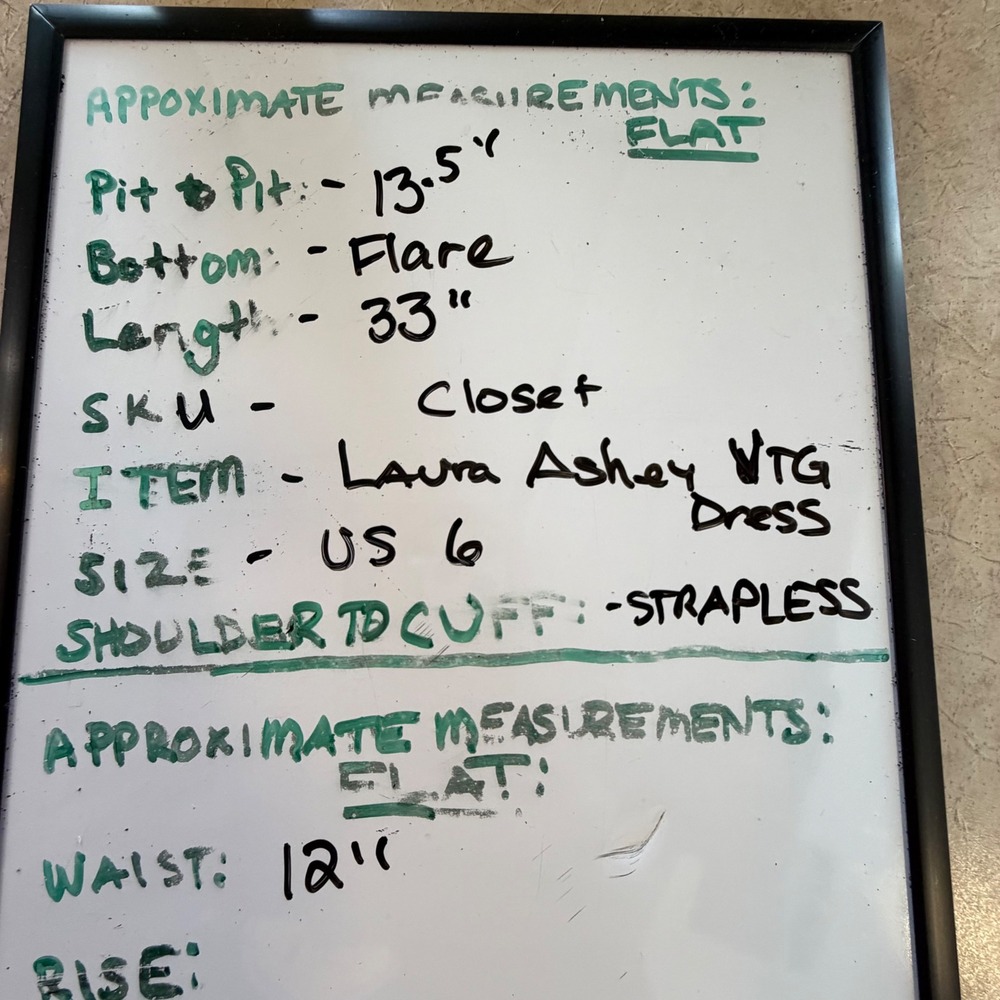 APPOXIMATE MEASUREMENTS:
FLAT
Pit to Pit: - 13.5"
Bottom: - Flare
Length - 33"
SKU - Closet
ITEM - Laura Ashey VTG
Dress
SIZE - US 6
SHOULDER TO CUFF: - STRAPLESS
APPROXIMATE MEASUREMENTS:
FLAT:
WAIST: 12"
RISE: